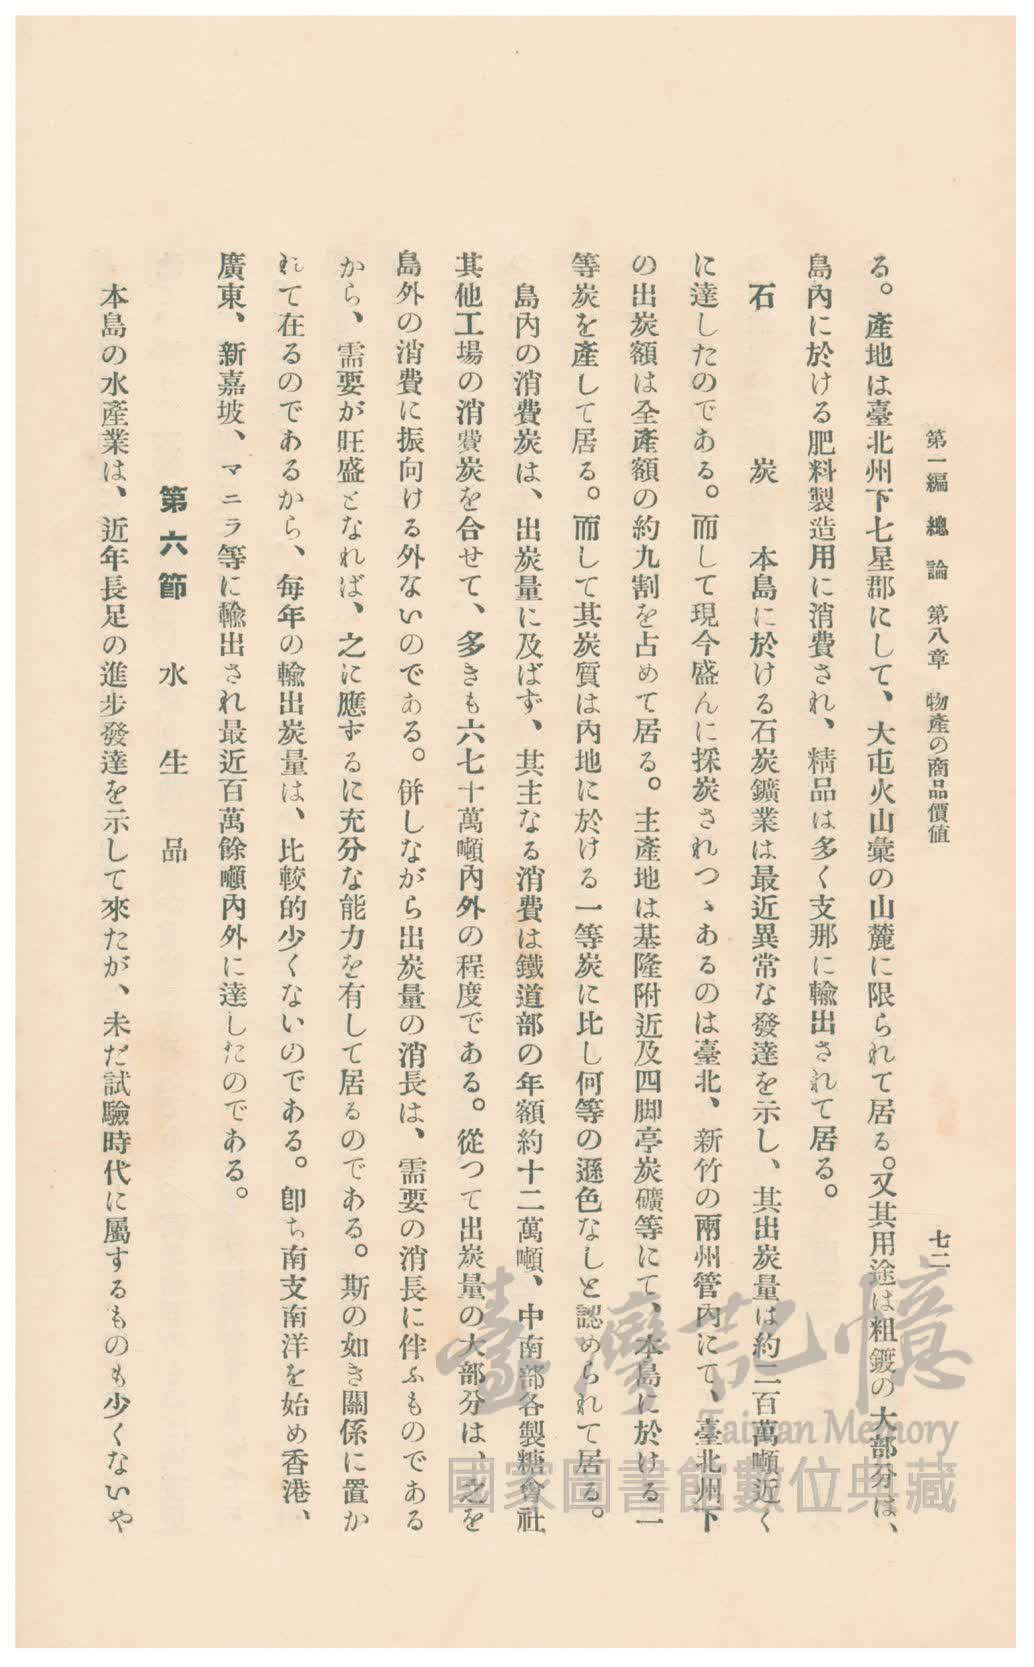 第一編　總　論　第八章　物產の商品價値
七二
る。產地は臺北州下七星郡にして、大屯火山彙の山麓に限られて居る。又其用途は粗鍍の大部分は、
島內に於ける肥料製造用に消費され、精品は多く支那に輸出されて居る。
石　　炭　本島に於ける石炭鑛業は最近異常な發達を示し、其出炭量は約二百萬噸近く
に達したのである。而して現今盛んに採炭されつゝあるのは臺北、新竹の兩州管內にて、臺北州下
の出炭額は全產額の約九割を占めて居る。主產地は基隆附近及四脚亭炭礦等にて、本島に於ける一
等炭を產して居る。而して其炭質は內地に於ける一等炭に比し何等の遜色なしと認められて居る。
島內の消費炭は、出炭量に及ばず、其主なる消費は鐵道部の年額約十二萬噸、中南部各製糖會社
其他工場の消費炭を合せて、多きも六七十萬噸內外の程度である。從つて出炭量の大部分は、之を
島外の消費に振向ける外ないのである。併しながら出炭量の消長は、需要の消長に伴ふものである
から、需要が旺盛となれば、之に應ずるに充分な能力を有して居るのである。斯の如き關係に置か
れて在るのであるから、每年の輸出炭量は、比較的少くないのである。卽ち南支南洋を始め香港、
廣東、新嘉坡、マニラ等に輸出され最近百萬餘噸內外に達したのである。
第六節　水生品
本島の水產業は、近年長足の進步發達を示して來たが、未だ試驗時代に屬するものも少くないや
臺灣記憶
Taiwan Memory
國家圖書館數位典藏